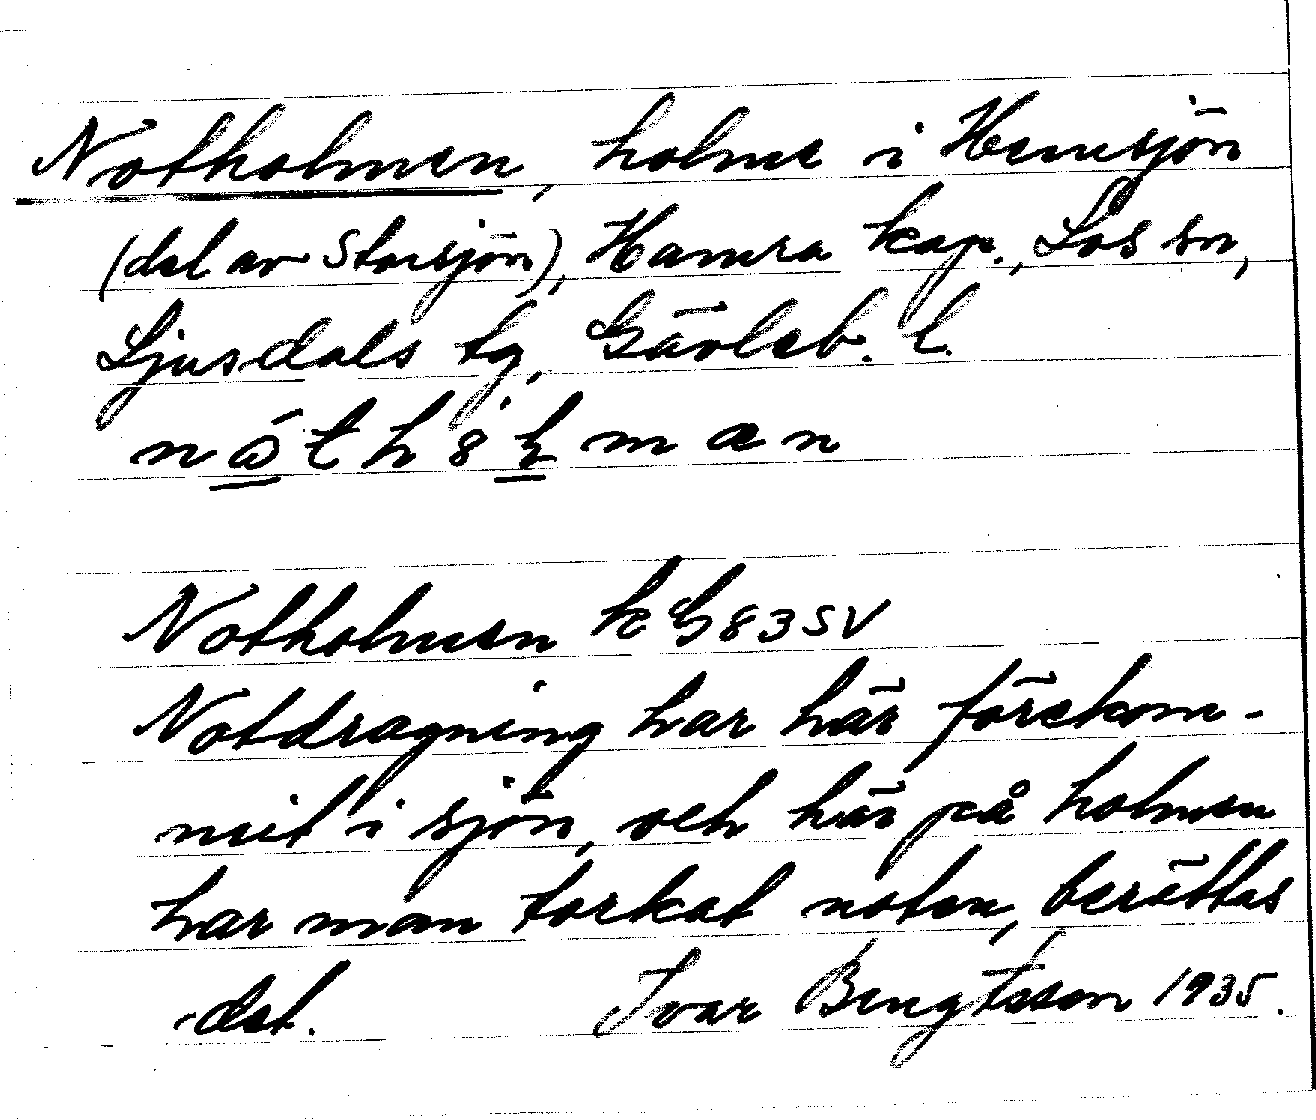 Notholmen, holme i Hemsjön
(del av Storsjön), Hamra kap., Los sn,
Ljusdals tg, Gävleb. l.
Notholmen k G 83 SV
Notdragning har här förekom-
mit i sjön, och här på holmen
har man torkat noten, berättas
det. Ivar Bengtsson 1935.